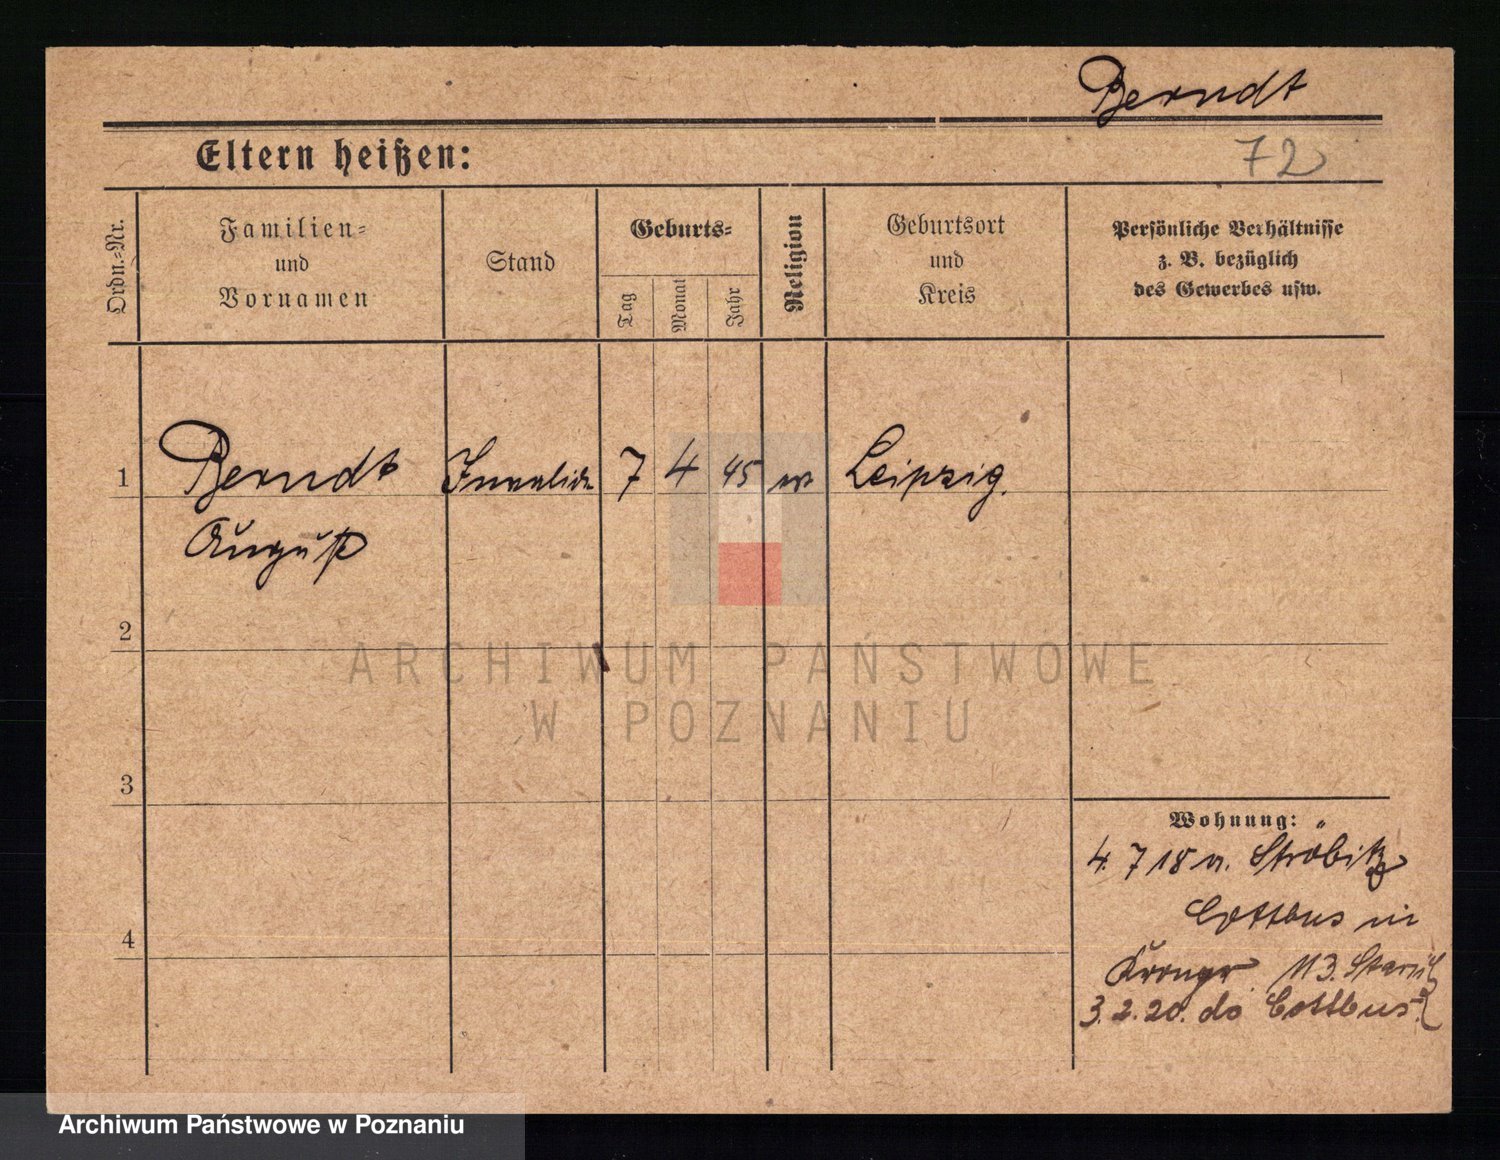 Berndt
Eltern heißen:
72
Ordn.-Nr.
Familien-
und
Vornamen
Stand
Geburts-
Tag
Monat
Jahr
Religion
Geburtsort
und
Kreis
Persönliche Verhältnisse
z. B. bezüglich
des Gewerbes usw.
1
Berndt Invalide 7 4 45 ev Leipzig.
August
2
ARCHIWUM PAŃSTWOWE
W POZNANIU
3
Wohnung:
4. 7 18 n. Ströbitz
Cottbus in
4
113.
3. 2. 20. do Cottbus
Archiwum Państwowe w Poznaniu